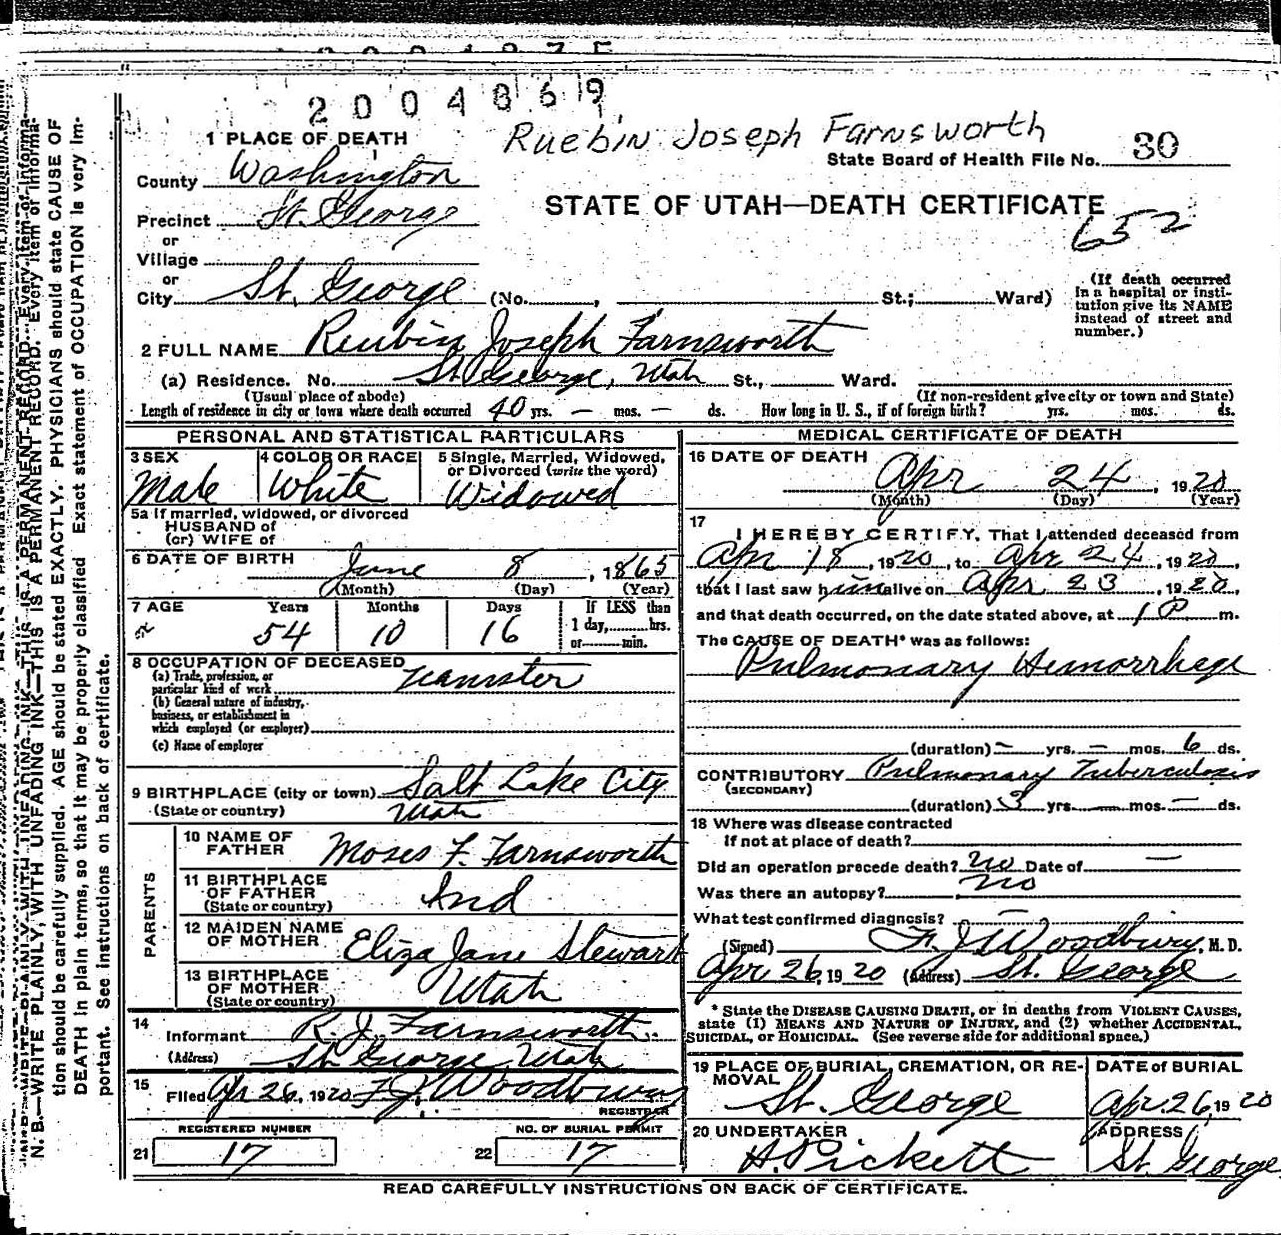 2004869
Ruebin Joseph Farnsworth
1 PLACE OF DEATH
State Board of Health File No. 30
County Washington
STATE OF UTAH—DEATH CERTIFICATE
652
Precinct St. George
or
Village
or
City St. George (No. , St.; Ward)
(If death occurred
in a hospital or insti-
tution give its NAME
instead of street and
number.)
2 FULL NAME Reubin Joseph Farnsworth
(a) Residence. No. St. George, Utah St., Ward.
(Usual place of abode) (If non-resident give city or town and State)
Length of residence in city or town where death occurred 40 yrs. — mos. — ds. How long in U. S., if of foreign birth? yrs. mos. ds.
PERSONAL AND STATISTICAL PARTICULARS
3 SEX
Male
4 COLOR OR RACE
White
5 Single, Married, Widowed,
or Divorced (write the word)
Widowed
5a If married, widowed, or divorced
HUSBAND of
(or) WIFE of
6 DATE OF BIRTH
June 8, 1865
(Month) (Day) (Year)
7 AGE Years Months Days If LESS than
54 10 16 1 day, hrs.
or min.
8 OCCUPATION OF DECEASED
(a) Trade, profession, or
particular kind of work Teamster
(b) General nature of industry,
business, or establishment in
which employed (or employer)
(c) Name of employer
9 BIRTHPLACE (city or town) Salt Lake City
(State or country) Utah
PARENTS
10 NAME OF
FATHER Moses F. Farnsworth
11 BIRTHPLACE
OF FATHER Ind
(State or country)
12 MAIDEN NAME
OF MOTHER Eliza Jane Stewart
13 BIRTHPLACE
OF MOTHER Utah
(State or country)
14
Informant R. J. Farnsworth
(Address) St. George Utah
15
Filed Apr 26, 1920 F. J. Woodbury
REGISTRAR
REGISTERED NUMBER
21 17
NO. OF BURIAL PERMIT
22 17
MEDICAL CERTIFICATE OF DEATH
16 DATE OF DEATH
Apr 24, 1920
(Month) (Day) (Year)
17
I HEREBY CERTIFY, That I attended deceased from
Apr 18, 1920, to Apr 24, 1920,
that I last saw him alive on Apr 23, 1920,
and that death occurred, on the date stated above, at 1 P. m.
The CAUSE OF DEATH* was as follows:
Pulmonary Hemorrhage
(duration) — yrs. — mos. 6 ds.
CONTRIBUTORY Pulmonary Tuberculosis
(SECONDARY)
(duration) 3 yrs. — mos. — ds.
18 Where was disease contracted
if not at place of death?
Did an operation precede death? no Date of —
Was there an autopsy? no
What test confirmed diagnosis? —
(Signed) F. J. Woodbury, M. D.
Apr 26, 1920 (Address) St. George
* State the DISEASE CAUSING DEATH, or in deaths from VIOLENT CAUSES,
state (1) MEANS AND NATURE OF INJURY, and (2) whether ACCIDENTAL,
SUICIDAL, or HOMICIDAL. (See reverse side for additional space.)
19 PLACE OF BURIAL, CREMATION, OR RE-
MOVAL
St. George
DATE of BURIAL
Apr 26, 1920
20 UNDERTAKER
H. Pickett
ADDRESS
St George
READ CAREFULLY INSTRUCTIONS ON BACK OF CERTIFICATE.
N. B.—WRITE PLAINLY, WITH UNFADING INK—THIS IS A PERMANENT RECORD. Every item of informa-
tion should be carefully supplied. AGE should be stated EXACTLY. PHYSICIANS should state CAUSE OF
DEATH in plain terms, so that it may be properly classified. Exact statement of OCCUPATION is very im-
portant. See instructions on back of certificate.